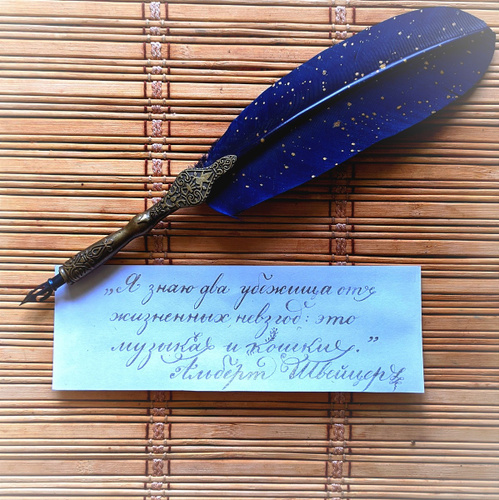 „Я знаю два убежища от
жизненных невзгод: это
музыка и кошки."
Альберт Швейцер